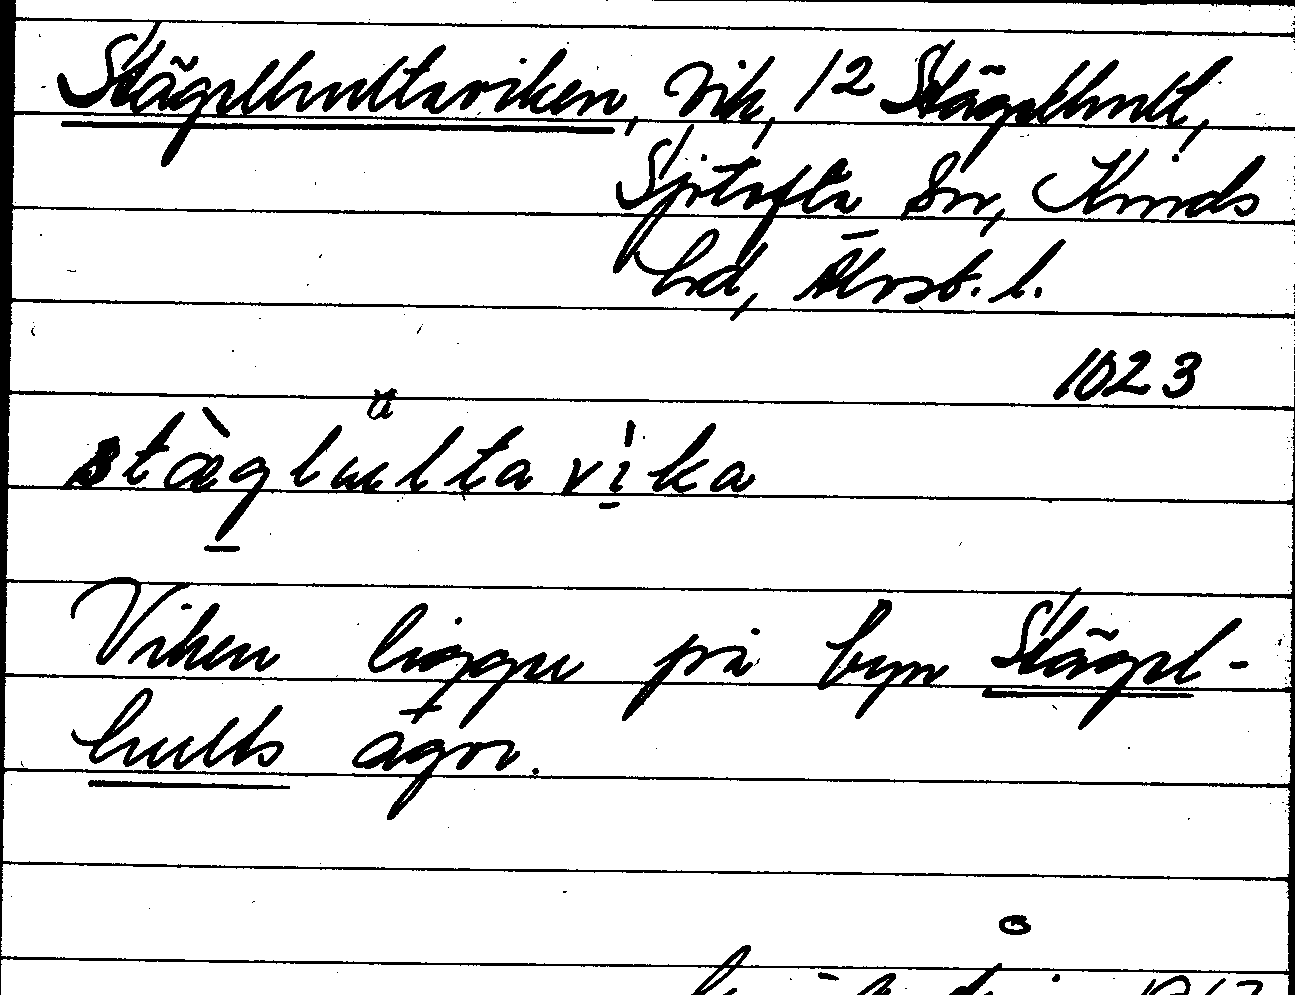 Stägelhultsviken, vik, 12 Stägelhult,
Sjötofta sn, Kinds
hd, Älvsb. l.
1023
ä
stæ̀glultavika
Viken ligger på byn Stägel-
hults ägor.